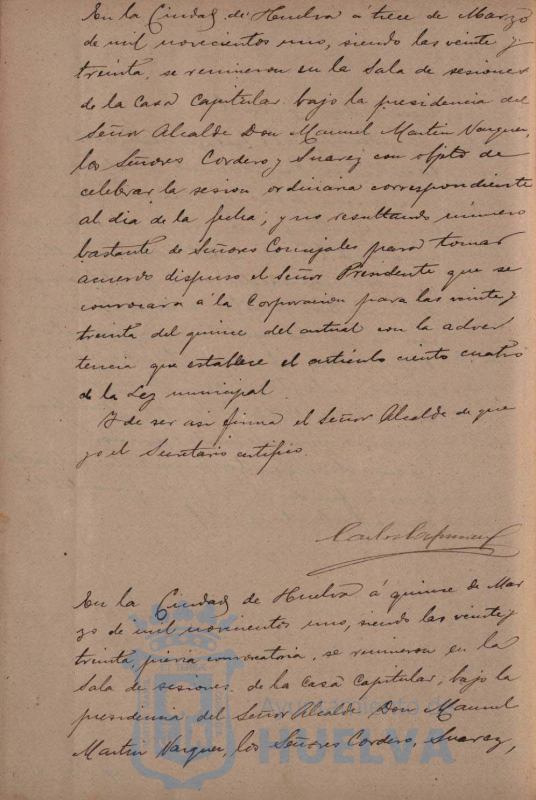 En la Ciudad de Huelva á trece de Marzo
de mil novecientos uno, siendo las veinte y
treinta, se reunieron en la Sala de sesiones
de la Casa Capitular bajo la presidencia del
Señor Alcalde Don Manuel Martin Vazquez,
los Señores Cordero y Suarez con objeto de
celebrar la sesion ordinaria correspondiente
al dia de la fecha; y no resultando número
bastante de Señores Concejales para tomar
acuerdo dispuso el Señor Presidente que se
convocara a la Corporacion para las veinte y
treinta del quince del actual con la adver
tencia que establece el artículo ciento cuatro
de la Ley municipal.
Y de ser asi firma el Señor Alcalde de que
yo el Secretario certifico.
En la Ciudad de Huelva á quince de Mar
zo de mil novecientos uno, siendo las veinte y
treinta, previa convocatoria, se reunieron en la
Sala de sesiones de la Casa Capitular, bajo la
presidencia del Señor Alcalde Don Manuel
Martin Vazquez, los Señores Cordero, Suarez,
Ayuntamiento de
HUELVA